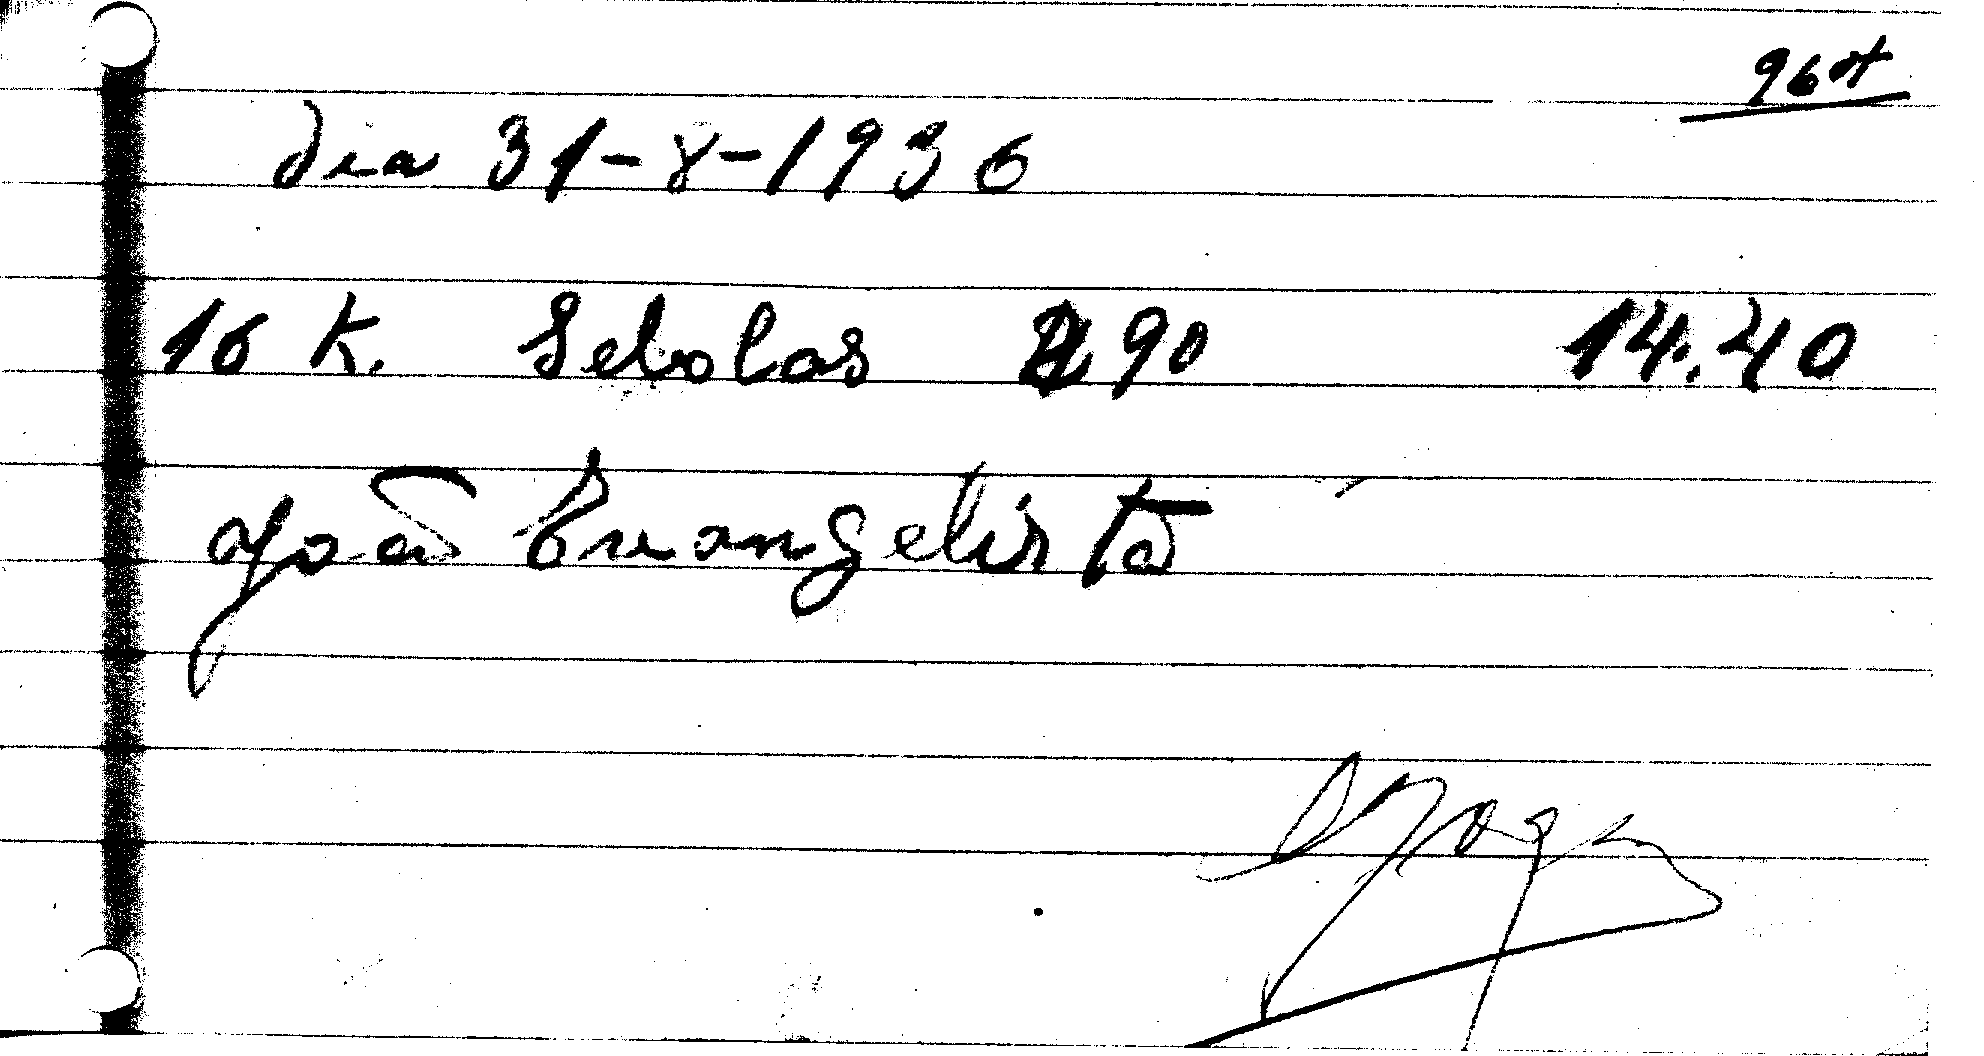 dia 31-8-1936
16 K. Sebolas 90 14.40
João Evangelista